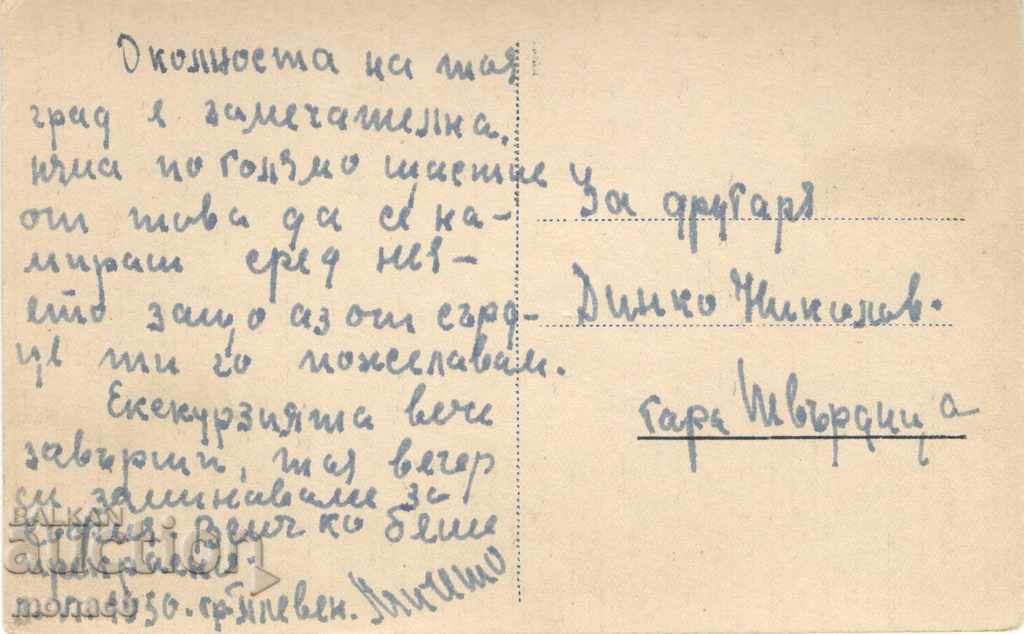 Околноста на тоя
град е замечателна,
няма по голямо щастие
от това да се на-
мираш сред нея-
ето защо аз от сърд-
це ти го пожелавам.
Екскурзията вече
завърши, тая вечер
си заминаваме за
София. Всичко беше
прекрасно.
1950. гр. Плевен. Личето
За другаря
Динко Николов.
гара Твърдица
BALKAN
auction